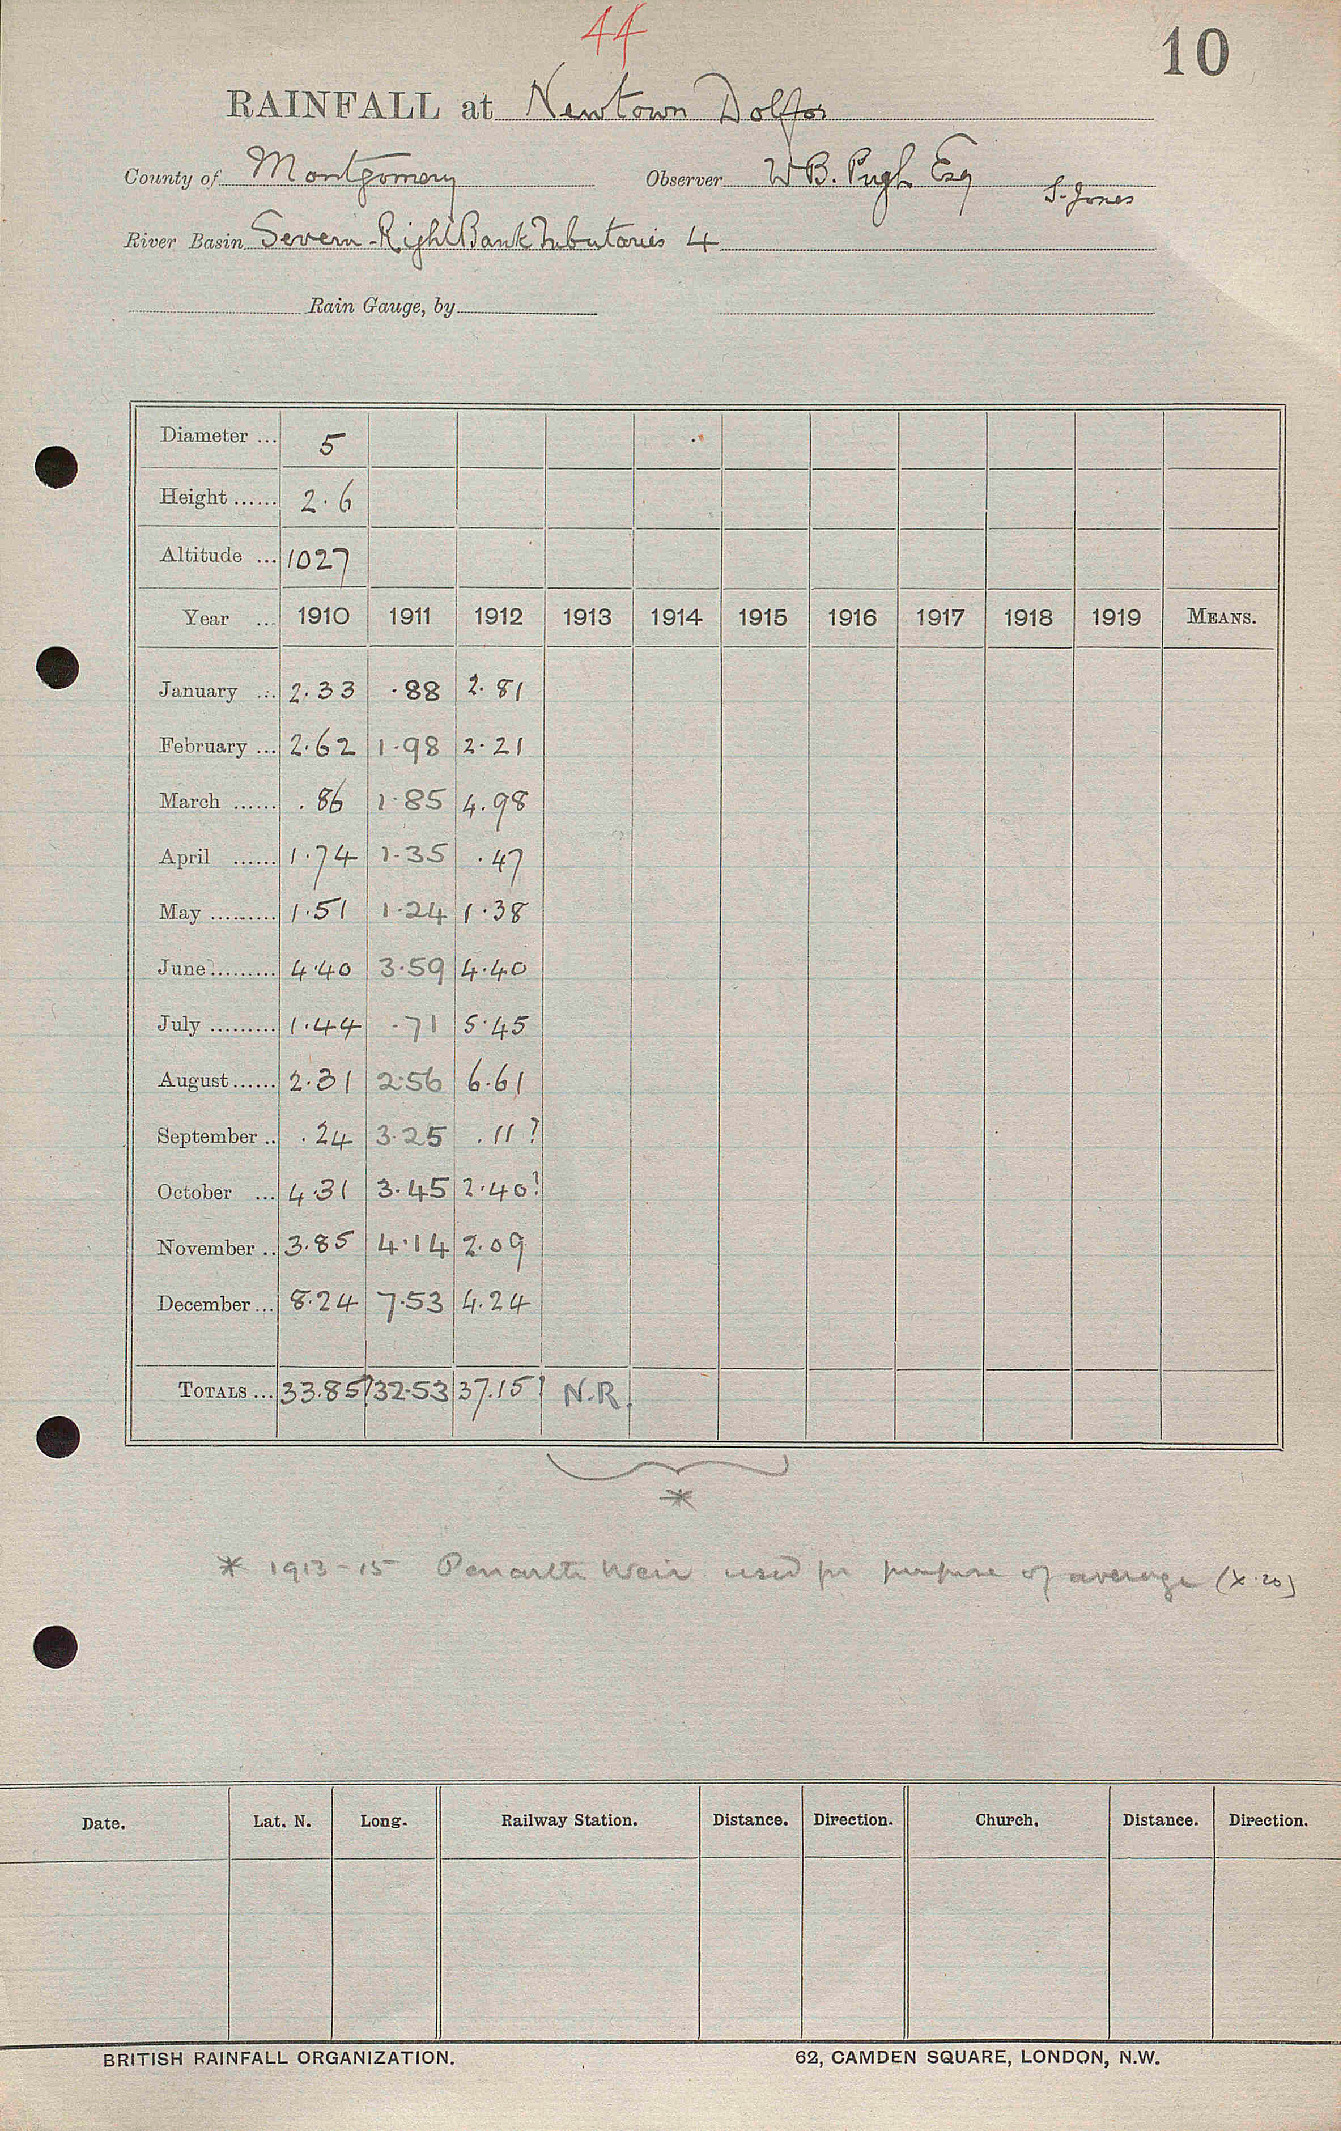 44
10
RAINFALL at Newtown Dolfor
County of Montgomery Observer W B. Pugh Esq S. Jones
River Basin Severn - Right Bank Tributaries 4
Rain Gauge, by
Diameter ... 5
Height ...... 2.6
Altitude ... 1027
Year ... 1910 1911 1912 1913 1914 1915 1916 1917 1918 1919 MEANS.
January ... 2.33 .88 2.81
February ... 2.62 1.98 2.21
March ...... .86 1.85 4.98
April ...... 1.74 1.35 .47
May ......... 1.51 1.24 1.38
June ......... 4.40 3.59 4.40
July ......... 1.44 .71 5.45
August ...... 2.31 2.56 6.61
September .. .24 3.25 .11?
October ... 4.31 3.45 2.40?
November .. 3.85 4.14 2.09
December ... 8.24 7.53 4.24
TOTALS ... 33.85? 32.53 37.15? N.R.
*
* 1913-15 Penarth Weir used for purpose of average (x.20)
Date. Lat. N. Long. Railway Station. Distance. Direction. Church. Distance. Direction.
BRITISH RAINFALL ORGANIZATION. 62, CAMDEN SQUARE, LONDON, N.W.